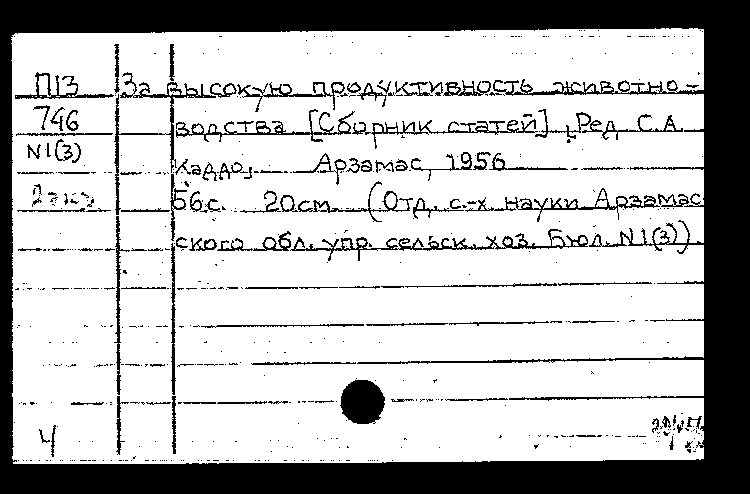 П13 За высокую продуктивность животно-
746 водства [Сборник статей] [Ред С.А.
N1(3) Хаддо]. Арзамас, 1956
2 экз 56с. 20см. (Отд. с.-х. науки Арзамас
ского обл. упр. сельск. хоз. Бюл. N1(3)).
4